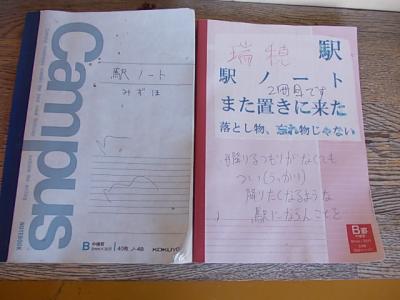 Campus
駅ノート
みずほ
B 中横罫
40枚 ノ-4B
KOKUYO
NOTEBOOK
瑞穂 駅
駅ノート
2冊目です
また置きに来た
落とし物、忘れ物じゃない
降りるつもりがなくても
つい(うっかり)
降りたくなるような
駅にならんことを
B罫